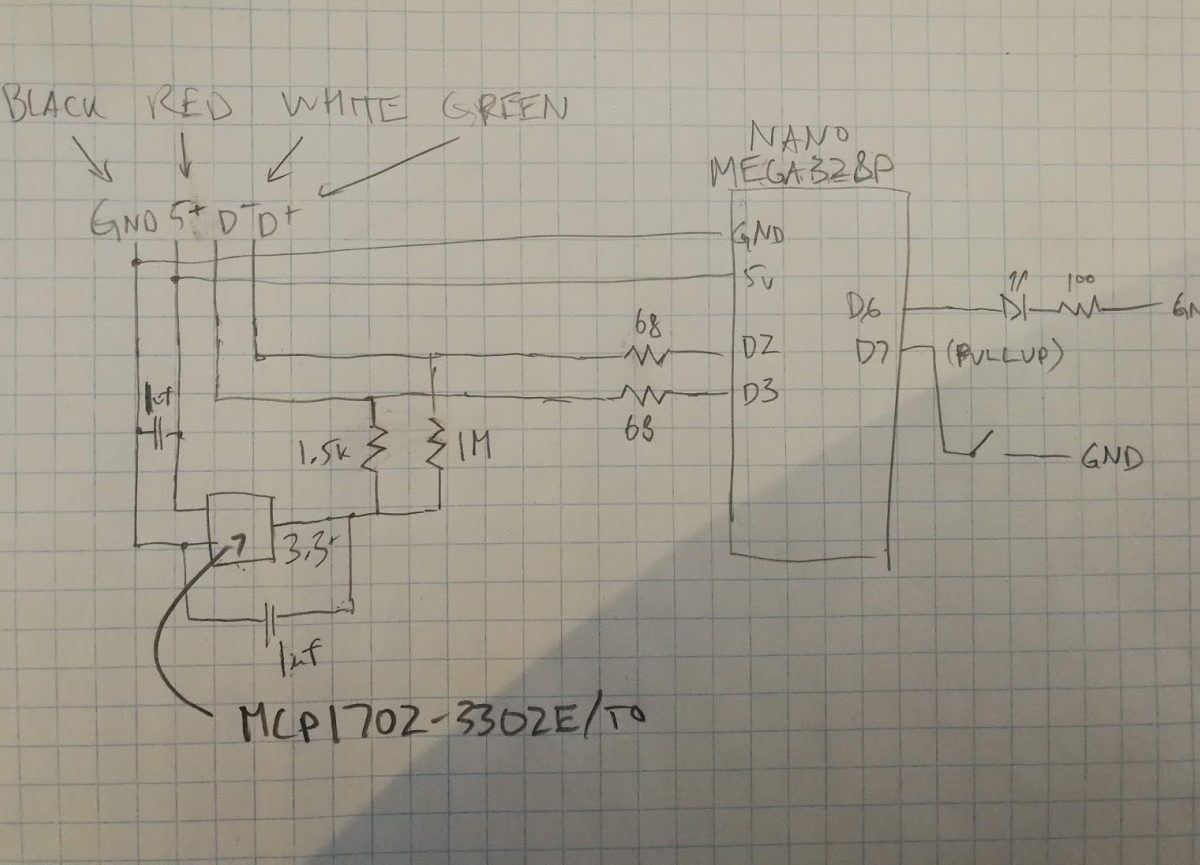 BLACK RED WHITE GREEN
NANO
MEGA328P
GND 5+ D- D+
GND
5v
D6
100
GN
68
D2
D7
(PULLUP)
D3
68
1uf
1.5K
1M
GND
3.3+
1uf
MCP1702-3302E/TO